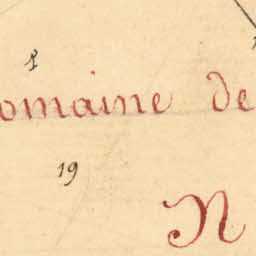 omaine de
19
N